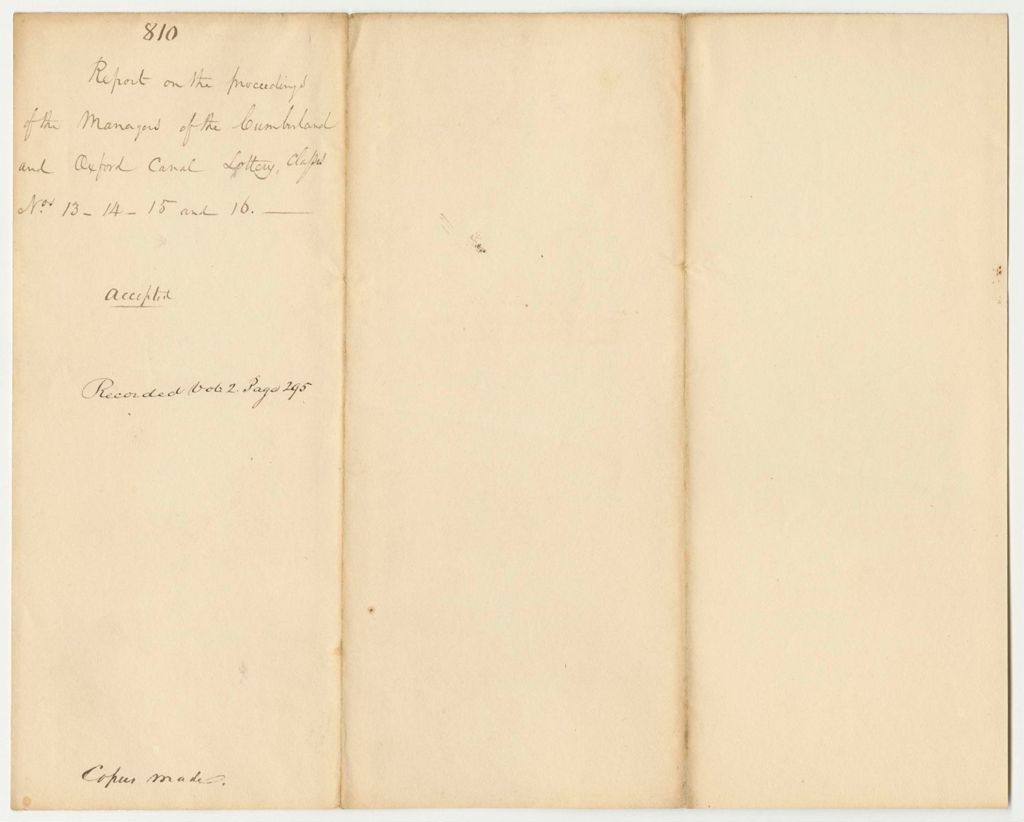 810
Report on the proceedings
of the Managers of the Cumberland
and Oxford Canal Lottery, Classes
Nos 13 - 14 - 15 and 16. —
Accepted
Recorded Vol: 2. Page 295
Copies made.